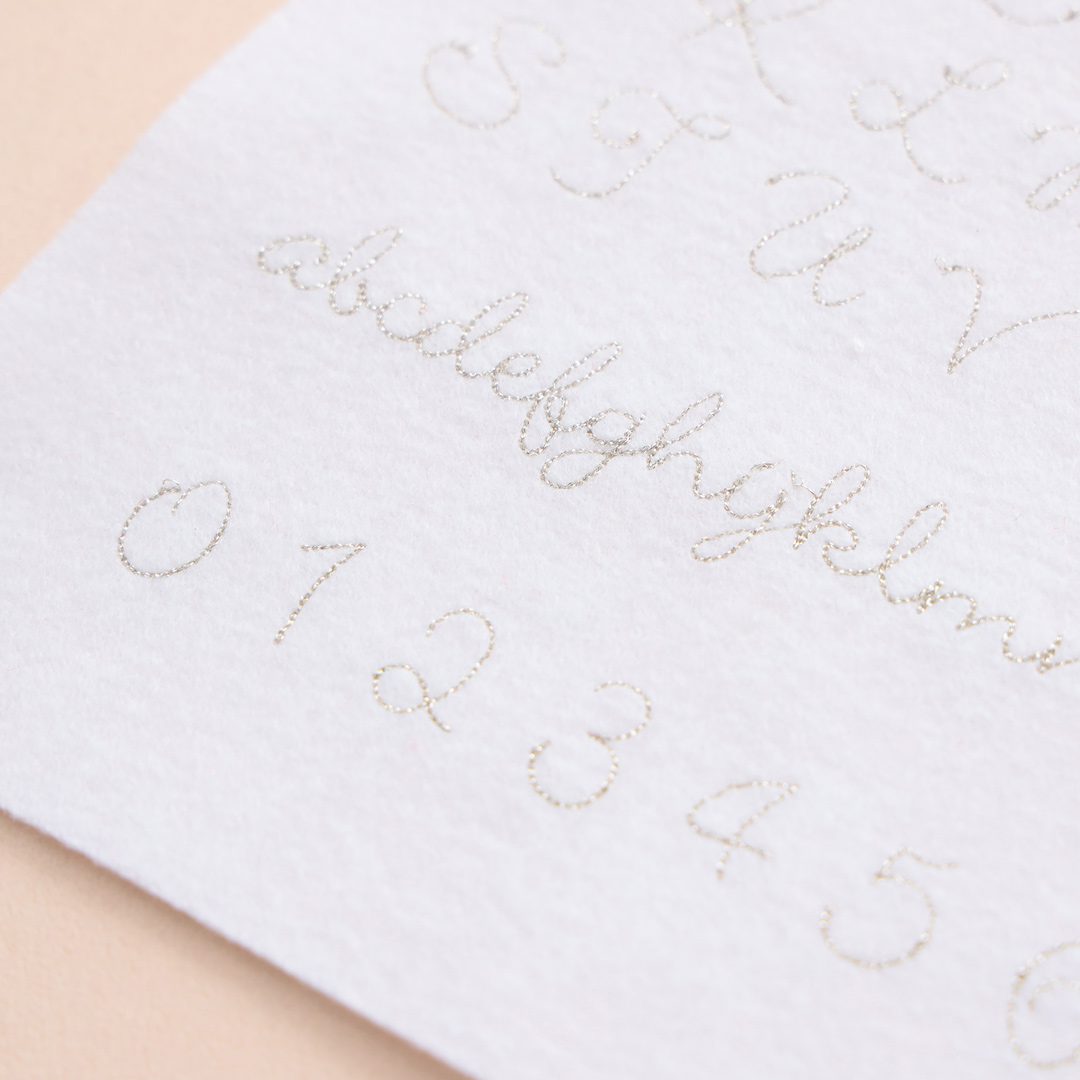 S T U V
abcdefghijklm
0 1 2 3 4 5 6